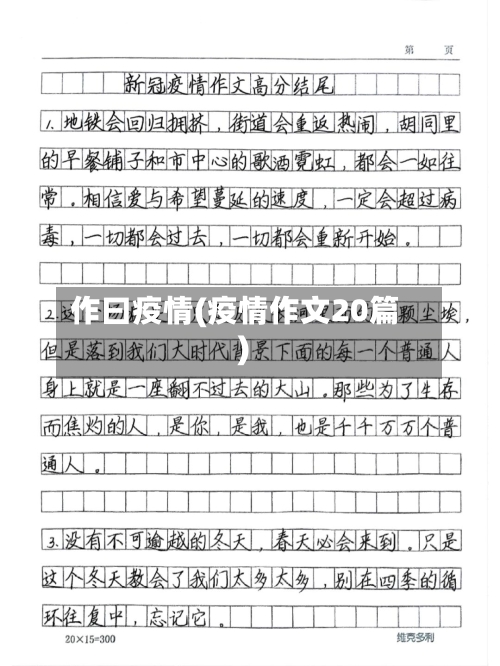 第 页
新冠疫情作文高分结尾
1.地铁会回归拥挤，街道会重返热闹，胡同里
的早餐铺子和市中心的歌酒霓虹，都会一如往
常。相信爱与希望蔓延的速度，一定会超过病
毒，一切都会过去，一切都会重新开始。
作曰疫情(疫情作文20篇
)
2.这 颗尘埃，
但是落到我们大时代背景下面的每一个普通人
身上就是一座翻不过去的大山。那些为了生存
而焦灼的人，是你，是我，也是千千万万个普
通人。
3.没有不可逾越的冬天，春天必会来到。只是
这个冬天教会了我们太多太多，别在四季的循
环往复中，忘记它。
20×15=300 维克多利